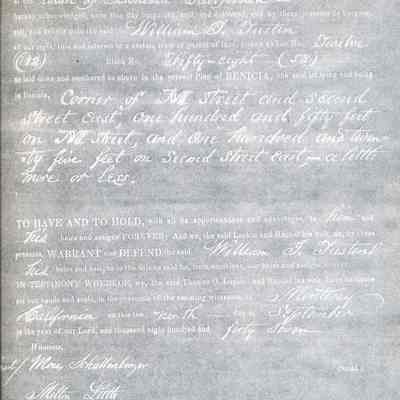 hereby acknowledged, have this day bargained, sold, and delivered, and by these presents do bargain,
sell, and deliver unto the said William T. Tustin
all our right, title and interest in a certain tract or parcel of land, known as Lot No. Twelve
(12) Block No. Fifty-eight (58)
as laid down and numbered to appear in the general Plan of BENICIA, the said lot lying and being
in Benicia,
Corner of M street and Second
street East, one hundred and fifty feet
on M street, and one hundred and twen-
ty five feet on Second street East — a little
more or less.
TO HAVE AND TO HOLD, with all its appurtenances and advantages, to him and
his heirs and assigns FOREVER; And we, the said Larkin and Semple do, by these
presents, WARRANT and DEFEND the said William T. Tustin &
his heirs and assigns in the
IN TESTIMONY WHEREOF, we, the said Thomas O. Larkin and Semple have hereunto
set our hands and seals, in the presence of the annexing witnesses, at Monterey
California on this the tenth day of September
in the year of our Lord, one thousand eight hundred and forty seven
Witnesses,
Moses Schallenberger
Milton Little
(Seal.)